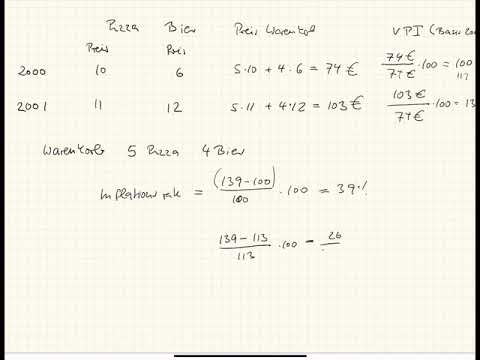 Pizza Bier Preis Warenkorb VPI (Basis 200
Preis Preis
2000 10 6 5·10 + 4·6 = 74 € 74 € / 74 € ·100 = 100
113
2001 11 12 5·11 + 4·12 = 103 € 103 € / 74 € ·100 = 13
Warenkorb 5 Pizza 4 Bier
Inflationsrate = (139-100) / 100 · 100 = 39 %
139-113 / 113 ·100 = 26